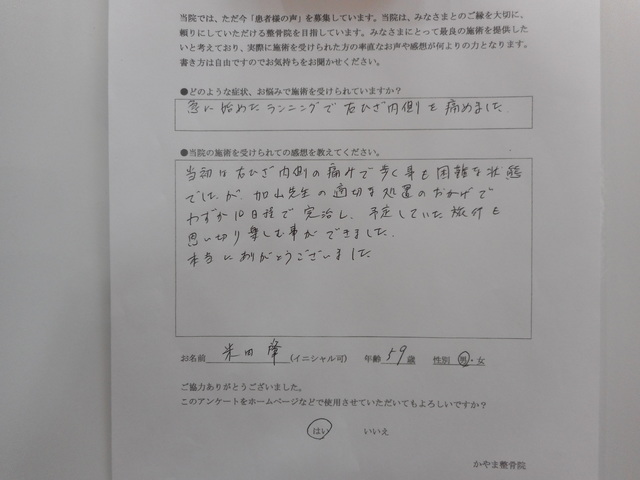 当院では、ただ今「患者様の声」を募集しています。当院は、みなさまとのご縁を大切に、
頼りにしていただける整骨院を目指しています。みなさまにとって最良の施術を提供した
いと考えており、実際に施術を受けられた方の率直なお声や感想が何よりの力となります。
書き方は自由ですのでお気持ちをお聞かせください。
●どのような症状、お悩みで施術を受けられていますか？
急に始めたランニングで右ひざ内側を痛めました。
●当院の施術を受けられての感想を教えてください。
当初は右ひざ内側の痛みで歩く事も困難な状態
でしたが、加山先生の適切な処置のおかげで
わずか10日程で完治し、予定していた旅行も
思い切り楽しむ事ができました。
本当にありがとうございました
お名前 米田 隆 (イニシャル可) 年齢 59 歳 性別 男・女
ご協力ありがとうございました。
このアンケートをホームページなどで使用させていただいてもよろしいですか？
はい いいえ
かやま整骨院